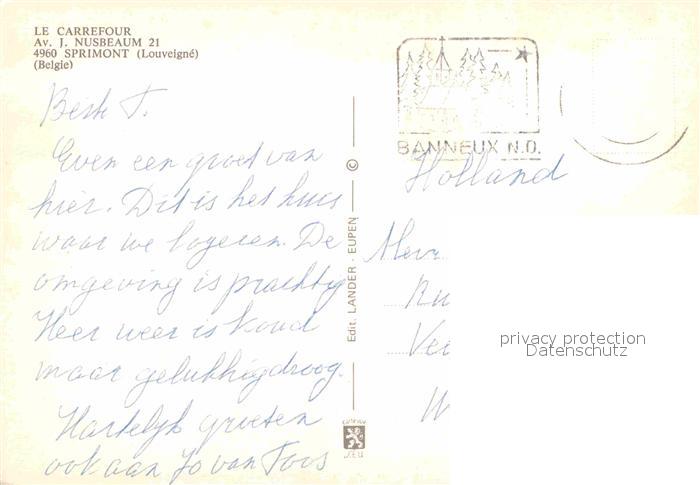 LE CARREFOUR
Av. J. NUSBEAUM 21
4960 SPRIMONT (Louveigné)
(Belgie)
Beste T.
Even een groet van
hier. Dit is het huis
waar we logeren. De
omgeving is prachtig
Heer weer is koud
maar gelukkig droog.
Hartelijk groeten
ook aan Jo van Toos
©
Edit. LANDER - EUPEN
BANNEUX N.D.
Holland
privacy protection
Datenschutz